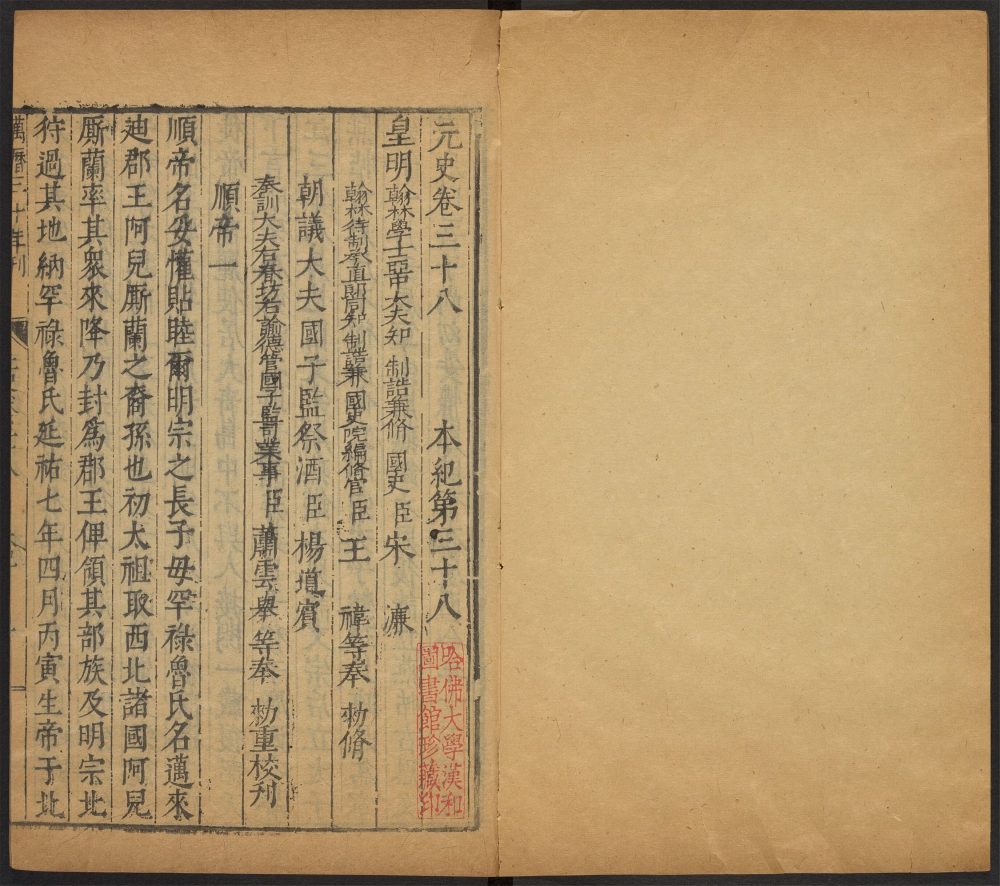 元史卷三十八 本紀第三十八
皇明翰林學士亞中大夫知 制誥兼脩 國史臣宋 濂
翰林待制承直郎同知 制誥兼 國史院編脩官臣王 禕等奉 勑脩
朝議大夫國子監祭酒臣楊道賓
奉訓大夫右春坊右諭德管國子監司業事臣蕭雲舉等奉 勑重校刊
順帝一
順帝名妥懽貼睦爾明宗之長子母罕祿魯氏名邁來
廸郡王阿兒厮蘭之裔孫也初太祖取西北諸國阿兒
厮蘭率其衆來降乃封爲郡王俾領其部族及明宗北
狩過其地納罕祿魯氏延祐七年四月丙寅生帝于北
萬曆三十年刊
哈佛大學漢和
圖書館珍藏印